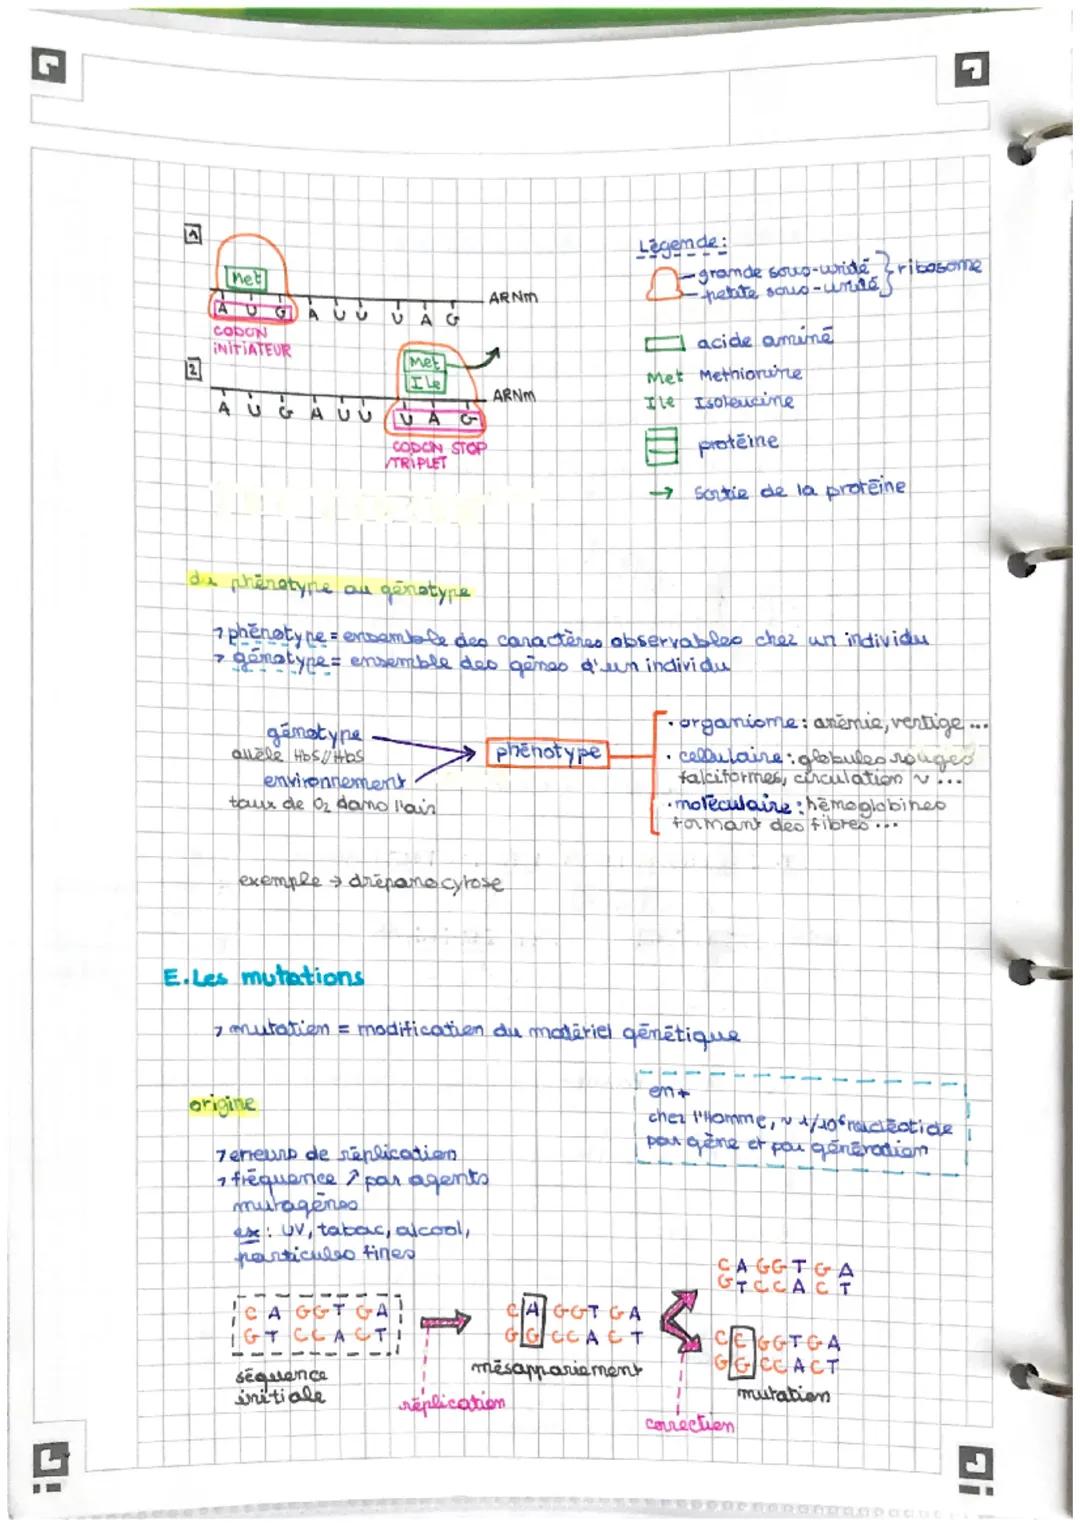 1
Met
A U G A U U U A G
ARNm
CODON
INITIATEUR
2
Met
Ile
A U G A U U U A G
ARNm
CODON STOP
/TRIPLET
Légende:
grande sous-unité } ribosome
petite sous-unité
acide aminé
Met Methionine
Ile Isoleucine
protéine
→ Sortie de la protéine
du phénotype au génotype
→ phénotype = ensemble des caractères observables chez un individu
→ génotype = ensemble des gènes d'un individu
génotype
allèle HbS//HbS
environnement
taux de O2 dans l'air
phénotype
· organisme : anémie, vertige ...
· cellulaire : globules rouges
falciformes, circulation ~ ...
· moléculaire : hémoglobines
formant des fibres ...
exemple → drépanocytose
E. Les mutations
→ mutation = modification du matériel génétique
origine
→ erreurs de réplication
→ fréquence ↗ par agents
mutagènes
ex : UV, tabac, alcool,
particules fines
en +
chez l'Homme, ~ 1/10⁶ nucléotide
par gène et par génération
C A G G T G A
G T C C A C T
séquence
initiale
réplication
C A G G T G A
G G C C A C T
mésappariement
correction
C A G G T G A
G T C C A C T
C C G G T G A
G G C C A C T
mutation